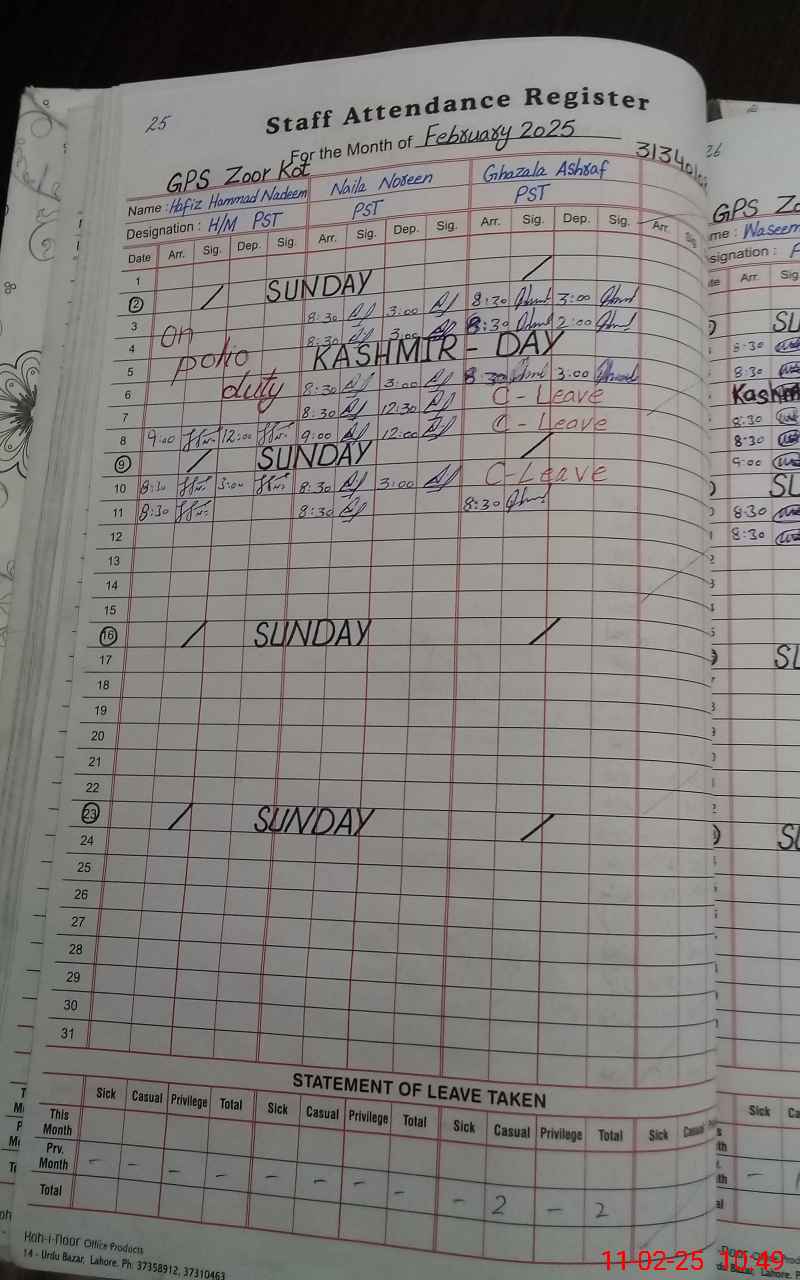 25
Staff Attendance Register
For the Month of February 2025
GPS Zoor Kot
Name : Hafiz Hammad Nadeem Naila Noreen Ghazala Ashraf
Designation : H/M PST PST PST
Date Arr. Sig. Dep. Sig. Arr. Sig. Dep. Sig. Arr. Sig. Dep. Sig. Arr. Sig.
1
2 / SUNDAY /
3 8:30 3:00 8:30 3:00
4 on 8:30 3:00 8:30 2:00
5 polio KASHMIR - DAY
6 duty 8:30 3:00 8 30 3:00
7 8:30 12:30 C - Leave
8 9:00 12:00 9:00 12:00 C - Leave
9 / SUNDAY /
10 8:30 3:00 8:30 3:00 C-Leave
11 8:30 8:30 8:30
12
13
14
15
16 / SUNDAY /
17
18
19
20
21
22
23 / SUNDAY /
24
25
26
27
28
29
30
31
STATEMENT OF LEAVE TAKEN
Sick Casual Privilege Total Sick Casual Privilege Total Sick Casual Privilege Total Sick Casual
This Month
Prv. Month - - - - - - - - - 2 - 2
Total
Koh-i-Noor Office Products
14 - Urdu Bazar, Lahore. Ph: 37358912, 37310463
26
GPS Zo
me : Waseem
signation :
Arr. Sig
SU
8:30
8:30
Kashm
8:30
8:30
9:00
SU
8:30
8:30
SU
SU
Sick Ca
11-02-25 10:49